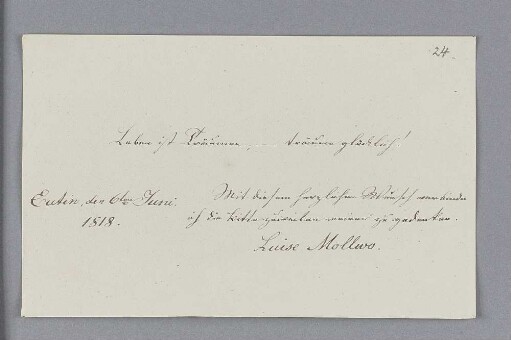 24.
Leben ist Träumen, — träume glücklich!
Eutin, den 6ten Juni.
1818.
Mit diesem herzlichen Wunsch verbinde
ich die Bitte zuweilen meiner zu gedenken.
Luise Mollwo.